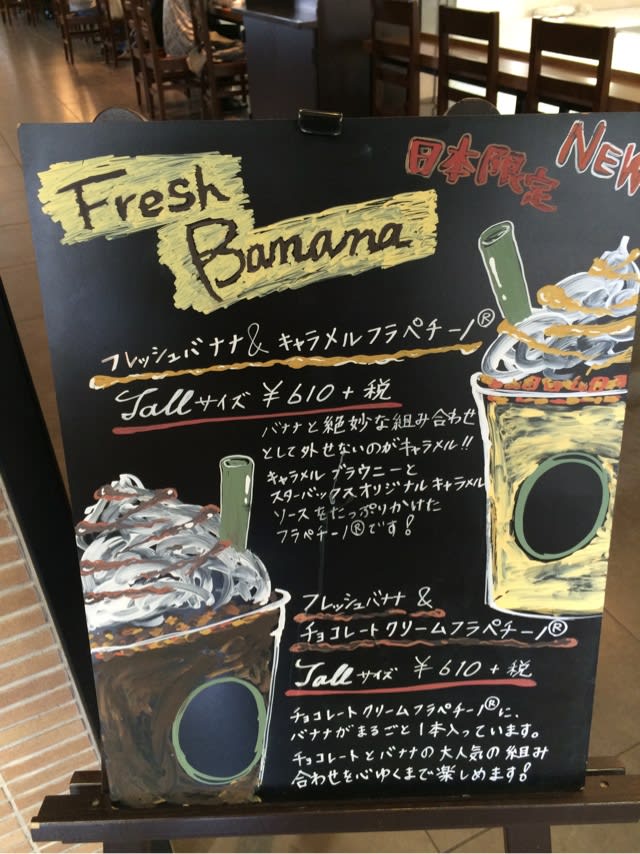 Fresh
Banana
日本限定
NEW
フレッシュバナナ& キャラメルフラペチーノ®
Tallサイズ ¥610+税
バナナと絶妙な組み合わせ
として外せないのがキャラメル!!
キャラメルブラウニーと
スターバックスオリジナルキャラメル
ソースをたっぷりかけた
フラペチーノ®です!
フレッシュバナナ &
チョコレートクリームフラペチーノ®
Tallサイズ ¥610+税
チョコレートクリームフラペチーノ®に、
バナナがまるごと1本入っています。
チョコレートとバナナの大人気の組み
合わせを心ゆくまで楽しめます!